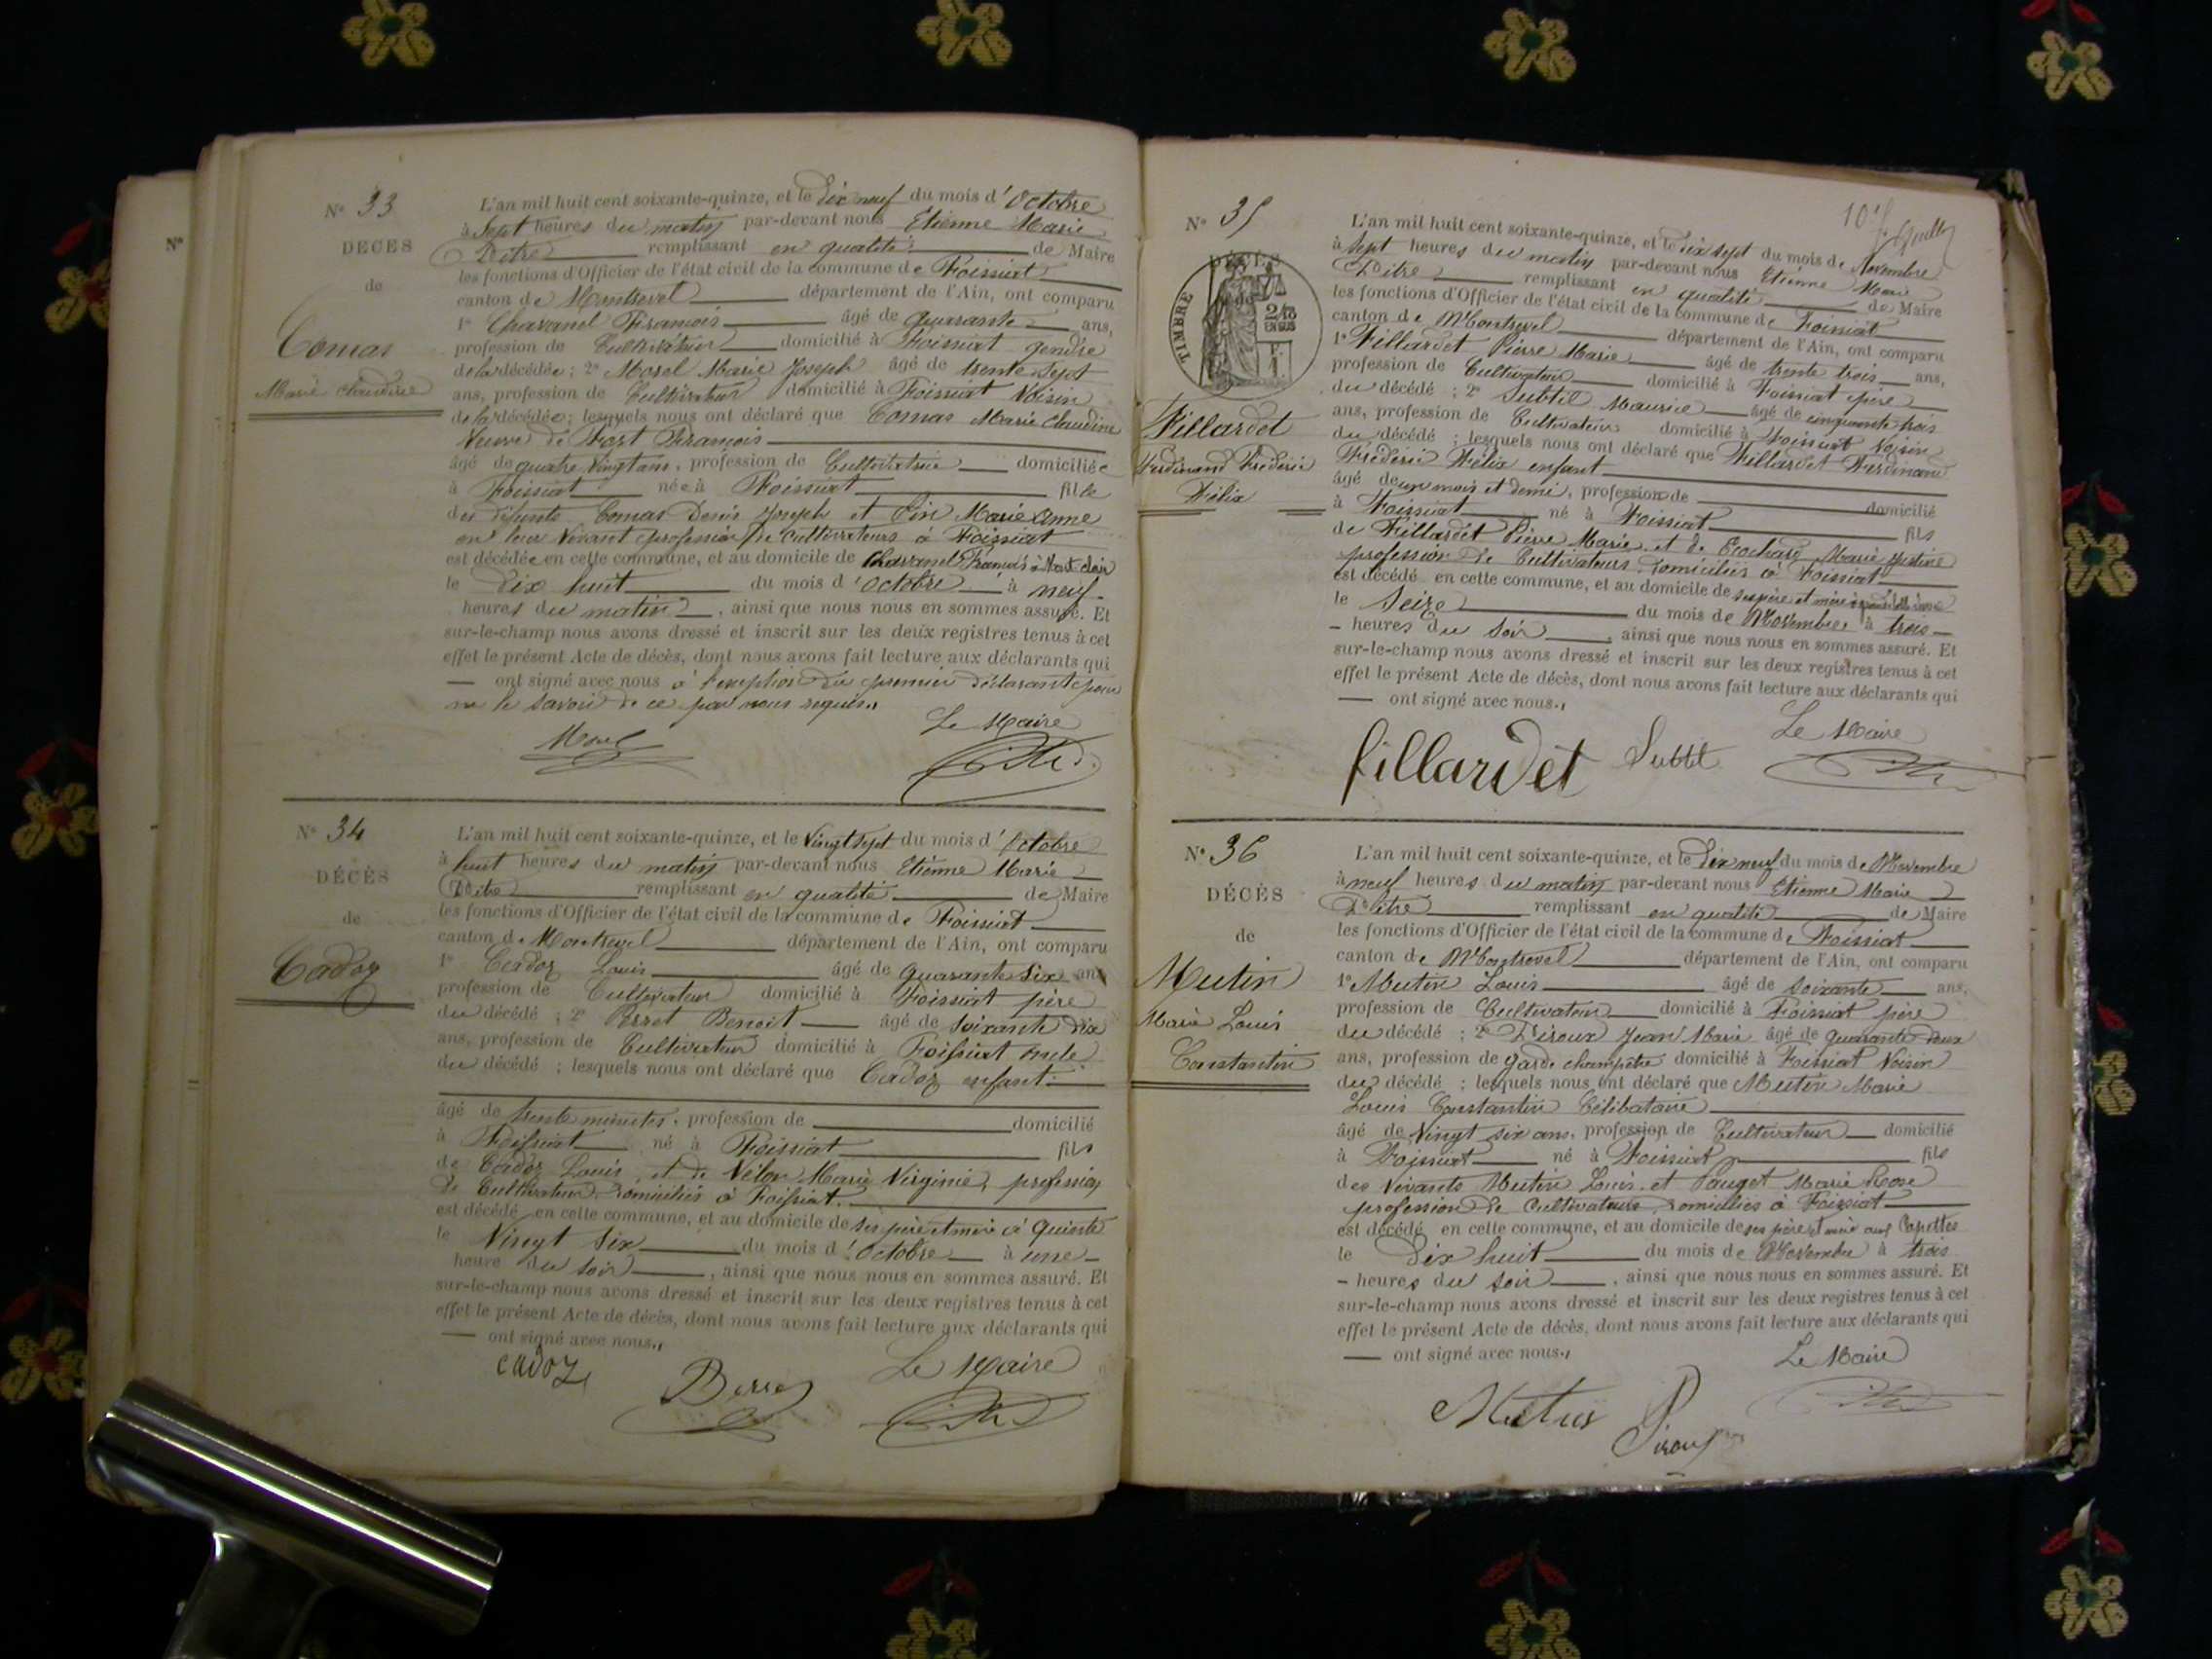 Nº
Nº 33
DÉCÈS
de
Comas
Marie Claudine
L'an mil huit cent soixante-quinze, et le dix neuf du mois d'Octobre
à Sept heures du matin par-devant nous Etienne Marie
Pitre remplissant en qualité de Maire
les fonctions d'Officier de l'état civil de la commune de Foissiat
canton de Montrevel département de l'Ain, ont comparu
1º Chavanel François âgé de quarante ans,
profession de Cultivateur domicilié à Foissiat gendre
de la décédée ; 2º Morel Marie Joseph âgé de trente sept
ans, profession de Cultivateur domicilié à Foissiat Voisin
de la décédée ; lesquels nous ont déclaré que Comas Marie Claudine
Veuve de François
âgé de quatre Vingt ans, profession de Cultivatrice domiciliée
à Foissiat née à Foissiat fille
des défunts Comas Denis Joseph et Pin Marie Anne
en leur Vivant profession de Cultivateurs à Foissiat
est décédée en cette commune, et au domicile de Chavanel François à
le dix huit du mois d'Octobre à neuf
heures du matin, ainsi que nous nous en sommes assuré. Et
sur-le-champ nous avons dressé et inscrit sur les deux registres tenus à cet
effet le présent Acte de décès, dont nous avons fait lecture aux déclarants qui
ont signé avec nous à l'exception du premier déclarant pour
ne le savoir de ce par nous requis.
Le Maire
Morel
Nº 34
DÉCÈS
de
Cadoz
L'an mil huit cent soixante-quinze, et le Vingt sept du mois d'Octobre
à huit heures du matin par-devant nous Etienne Marie
Pitre remplissant en qualité de Maire
les fonctions d'Officier de l'état civil de la commune de Foissiat
canton de Montrevel département de l'Ain, ont comparu
1º Cadoz Louis âgé de quarante Six ans
profession de Cultivateur domicilié à Foissiat père
du décédé ; 2º Perret Benoit âgé de soixante dix
ans, profession de Cultivateur domicilié à Foissiat oncle
du décédé ; lesquels nous ont déclaré que Cadoz enfant
âgé de trente minutes, profession de domicilié
à Foissiat né à Foissiat fils
de Cadoz Louis et de Velon Marie Virginie, profession
de Cultivateurs domiciliés à Foissiat.
est décédé en cette commune, et au domicile de ses père et mère à
le Vingt Six du mois d'Octobre à une
heure du soir, ainsi que nous nous en sommes assuré. Et
sur-le-champ nous avons dressé et inscrit sur les deux registres tenus à cet
effet le présent Acte de décès, dont nous avons fait lecture aux déclarants qui
ont signé avec nous.
Le Maire
cadoz
Nº 35
DÉCÈS
TIMBRE
2/10
EN SUS
F.
1.
Fillardet
Ferdinand Frédéric
Félix
L'an mil huit cent soixante-quinze, et le dix sept du mois de Novembre
à Sept heures du matin par-devant nous Etienne Marie
Pitre remplissant en qualité de Maire
les fonctions d'Officier de l'état civil de la commune de Foissiat
canton de Montrevel département de l'Ain, ont comparu
1º Fillardet Pierre Marie âgé de trente trois ans,
profession de Cultivateur domicilié à Foissiat père
du décédé ; 2º Subtil Maurice âgé de cinquante trois
ans, profession de Cultivateur domicilié à Foissiat Voisin
du décédé ; lesquels nous ont déclaré que Fillardet Ferdinand
Frédéric Félix enfant
âgé de un mois et demi, profession de domicilié
à Foissiat né à Foissiat fils
de Fillardet Pierre Marie et de Marie Justine
profession de Cultivateurs domiciliés à Foissiat
est décédé en cette commune, et au domicile de ses père et mère
le Seize du mois de Novembre à trois
heures du soir, ainsi que nous nous en sommes assuré. Et
sur-le-champ nous avons dressé et inscrit sur les deux registres tenus à cet
effet le présent Acte de décès, dont nous avons fait lecture aux déclarants qui
ont signé avec nous.
Le Maire
fillardet Subtil
Nº 36
DÉCÈS
de
Mutin
Marie Louis
Constantin
L'an mil huit cent soixante-quinze, et le Dix neuf du mois de Novembre
à neuf heures du matin par-devant nous Etienne Marie
Pitre remplissant en qualité de Maire
les fonctions d'Officier de l'état civil de la commune de Foissiat
canton de Montrevel département de l'Ain, ont comparu
1º Mutin Louis âgé de soixante ans,
profession de Cultivateur domicilié à Foissiat père
du décédé ; 2º Piroux Jean Marie âgé de quarante deux
ans, profession de garde champêtre domicilié à Foissiat Voisin
du décédé ; lesquels nous ont déclaré que Mutin Marie
Louis Constantin Célibataire
âgé de Vingt six ans, profession de Cultivateur domicilié
à Foissiat né à Foissiat fils
des Vivants Mutin Louis et Pauget Marie Rose
profession de Cultivateurs domiciliés à Foissiat
est décédé en cette commune, et au domicile de ses père et mère aux Capettes
le Dix huit du mois de Novembre à trois
heures du soir, ainsi que nous nous en sommes assuré. Et
sur-le-champ nous avons dressé et inscrit sur les deux registres tenus à cet
effet le présent Acte de décès, dont nous avons fait lecture aux déclarants qui
ont signé avec nous.
Le Maire
Mutin
Piroux